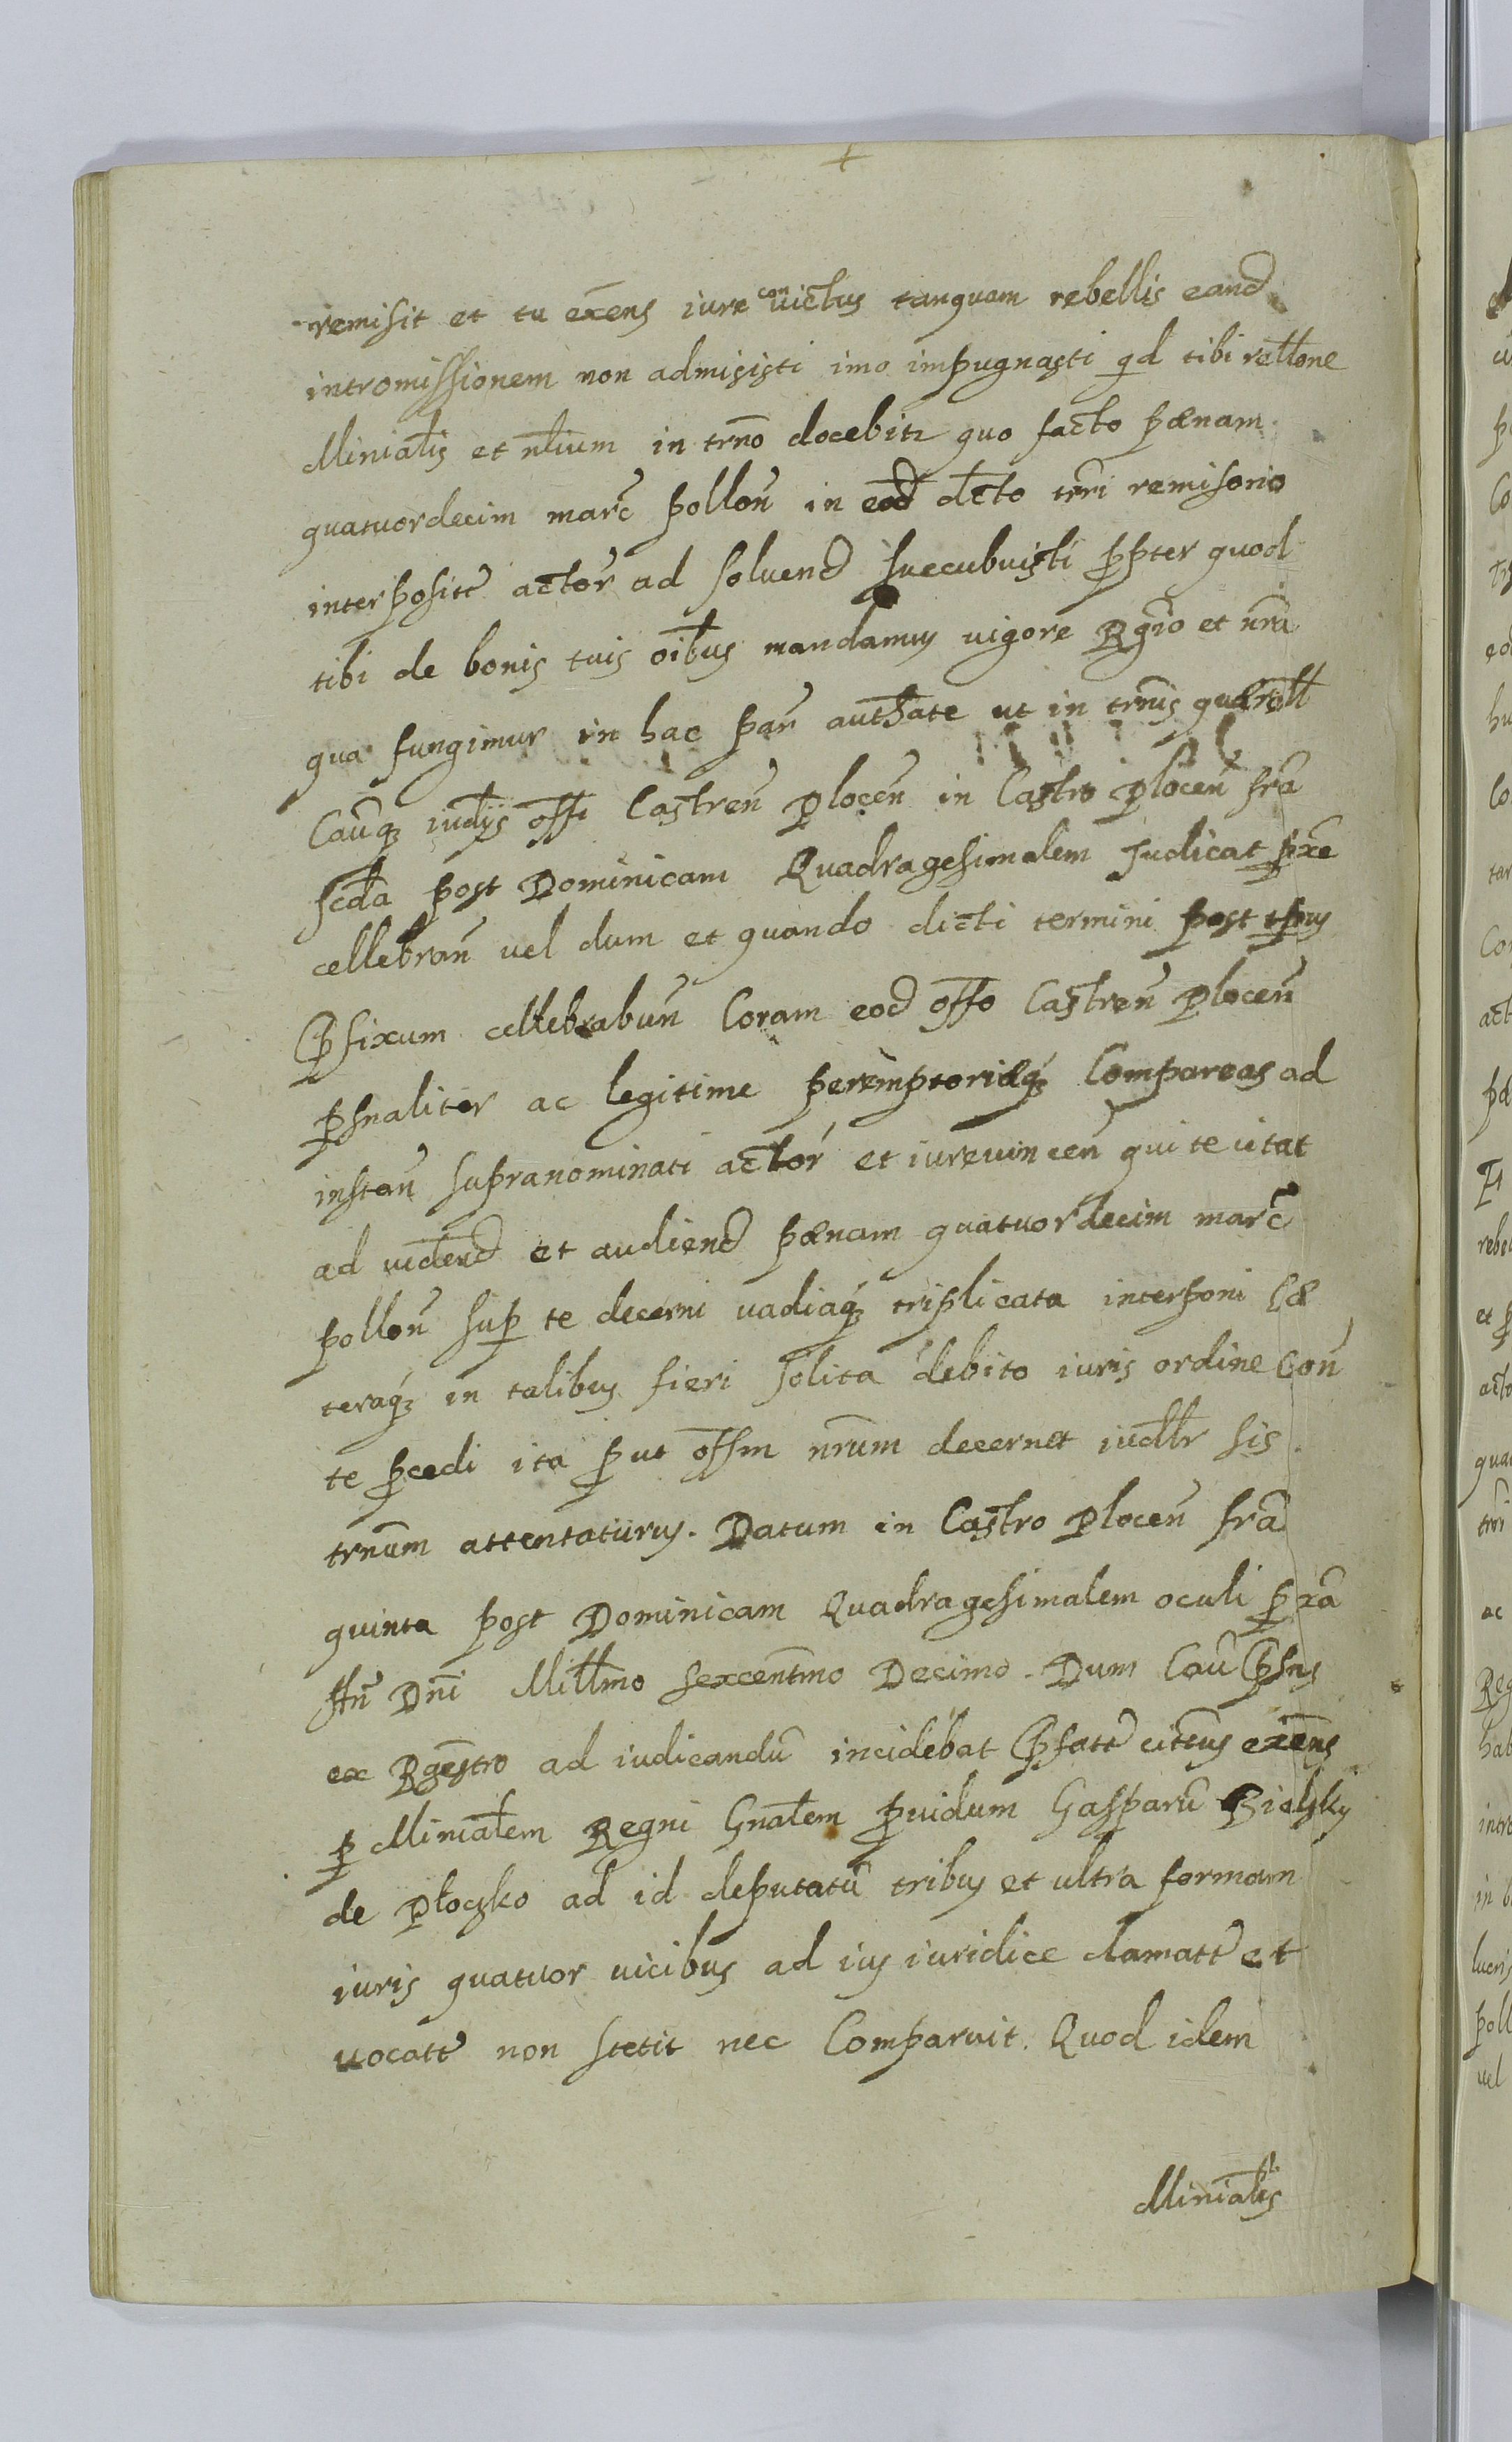 remisit et tu exēns iure conuictus tanquam rebellis eand
intromissionem non admisisti imo impugnasti qd tibi ratione
Ministlis et nlium in trno docebitr quo facto pænam
quatuordecim marc pollon in eod dcto trri remisorio
interposite actor ad soluend succubuisti ppter quod
tibi de bonis tuis oibus mandamus uigore Rgio et nra
qua fungimur in hac par authate ut in trnis quærell
Cauq iudijs offi Castren Plocen in Castro Plocen fra
scda post Dominicam Quadragesimalem Iudicat pxe
cellebran uel dum et quando dicti termini post tpus
Pfixum cellebrabun Coram eod offo Castren Plocen
psnaliter ac legitime peremptorieq Compareas ad
instan supranominati actor et iureuincen qui te citat
ad uidend et audiend pænam quatuordecim marc
pollon sup te decerni uadiaq triplicata interponi Cæ
teraq in talibus fieri solita debito iuris ordine Con
te pcedi ita put offm nrum decernet iudlr sis
trnum attentaturus. Datum in Castro Plocen fra
quinta post Dominicam Quadragesimalem oculi pxa
An Dni Millmo sexcentmo Decimo. Dum Cau Psns
ex Rgestro ad iudicandu incidebat Pfatt citus exens
p Ministlem Regni Gnalem puidum Gasparu Bielsky
de Płoczko ad id deputatu tribus et ultra formam
iuris quatuor uicibus ad ius iuridice clamatt et
uocatt non stetit nec Comparuit. Quod idem
Ministlis